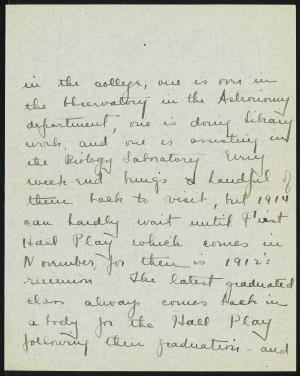 in the college, one is over in
the Observatory in the Astronomy
department, one is doing Library
work, and one is assisting in
the Biology Laboratory. Every
week-end brings a handful of
them back to visit, but 1914
can hardly wait until First
Hall Play which comes in
November, for then is 1912's
reunion. The latest graduated
class always comes back in
a body for the Hall Play
following their graduation - and